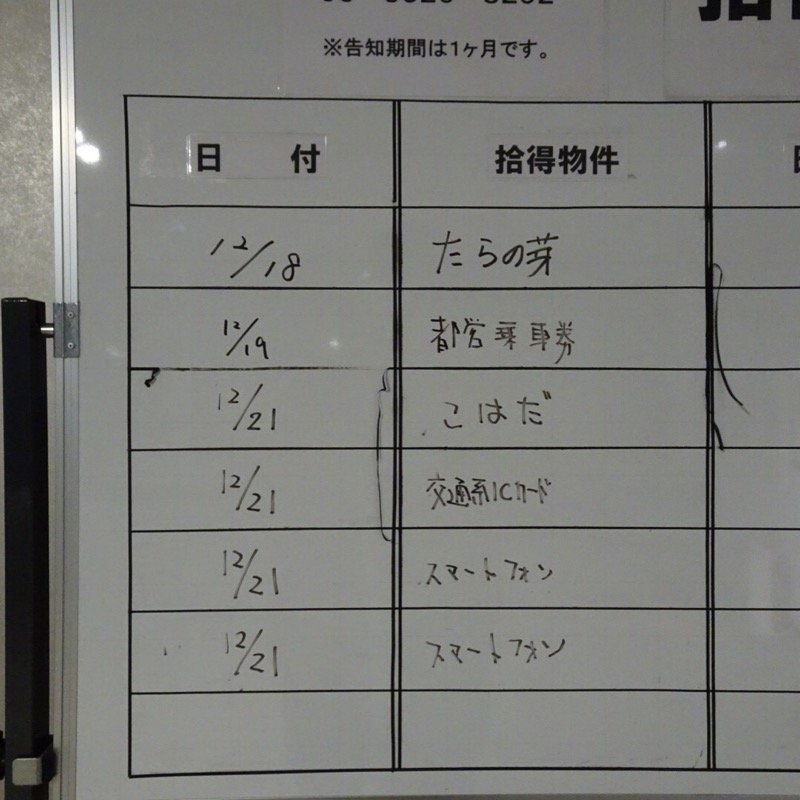 ※告知期間は1ヶ月です。
日 付 拾得物件
12/18 たらの芽
12/19 都営乗車券
12/21 こはだ
12/21 交通系ICカード
12/21 スマートフォン
12/21 スマートフォン